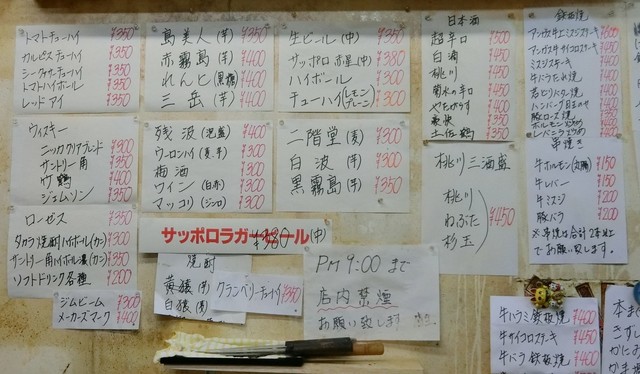 トマトチューハイ ¥350
カルピスチューハイ ¥350
シークヮーサーチューハイ ¥350
トマトハイボール ¥350
レッドアイ ¥350
島美人(芋) ¥350
赤霧島(芋) ¥400
れんと(黒糖) ¥400
三岳(芋) ¥400
生ビール(中) ¥350
サッポロ赤星(中) ¥380
ハイボール ¥300
チューハイ(レモン プレーン) ¥300
日本酒
超辛口 ¥500
白瀑 ¥400
桃川 ¥350
菊水の辛口 ¥450
やたがらす ¥400
豪快 ¥350
土佐鶴 ¥350
鉄板焼
アンガス牛上ミスジステーキ ¥600
アンガス牛サイコロステーキ
ミスジステーキ
牛バラたれ焼 ¥400
ウィスキー
ニッカクリアブレンド ¥300
サントリー角 ¥350
竹鶴 ¥400
ジェムソン ¥350
残波(泡盛) ¥400
ウーロンハイ(麦.芋) ¥300
梅酒 ¥300
ワイン(白赤) ¥350
マッコリ(ジンロ) ¥300
二階堂(麦) ¥300
白波(芋) ¥300
黒霧島(芋) ¥350
桃川三酒盛
桃川
ねぶた
杉玉
¥450
串焼き
牛ホルモン(丸腸) ¥150
牛レバー ¥150
牛ミスジ ¥200
豚バラ ¥200
※串焼は合計2本以上
でお願い致します。
ローゼス ¥350
タカラ焼酎ハイボール(カン) ¥300
サントリー角ハイボール濃(カン) ¥350
ソフトドリンク各種 ¥200
サッポロラガービール(中)
¥380
焼酎
黄猿(芋)
白猿(芋)
クランベリーチューハイ ¥350
PM 9:00 まで
店内禁煙
お願い致します
ジムビーム ¥300
メーカーズマーク ¥400
牛ハラミ鉄板焼 ¥400
牛サイコロステーキ ¥450
牛バラ鉄板焼 ¥400